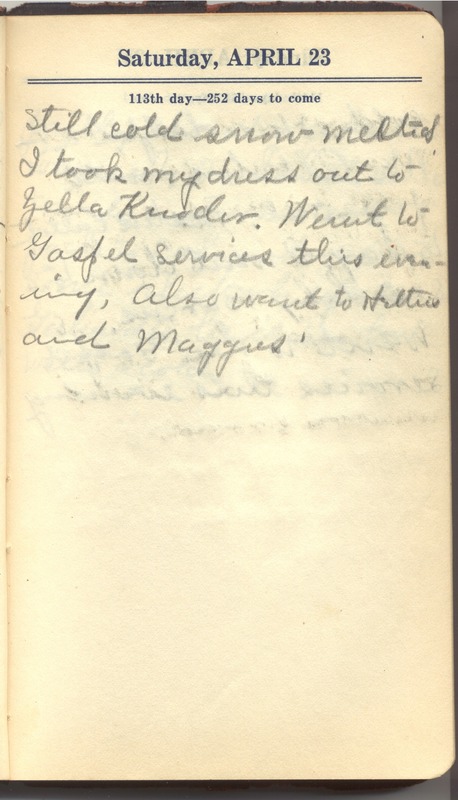 Saturday, APRIL 23
113th day—252 days to come
Still cold snow melted
I took my dress out to
Zella Kinder. Went to
Gospel services this even-
ing, Also went to
and Maggies'